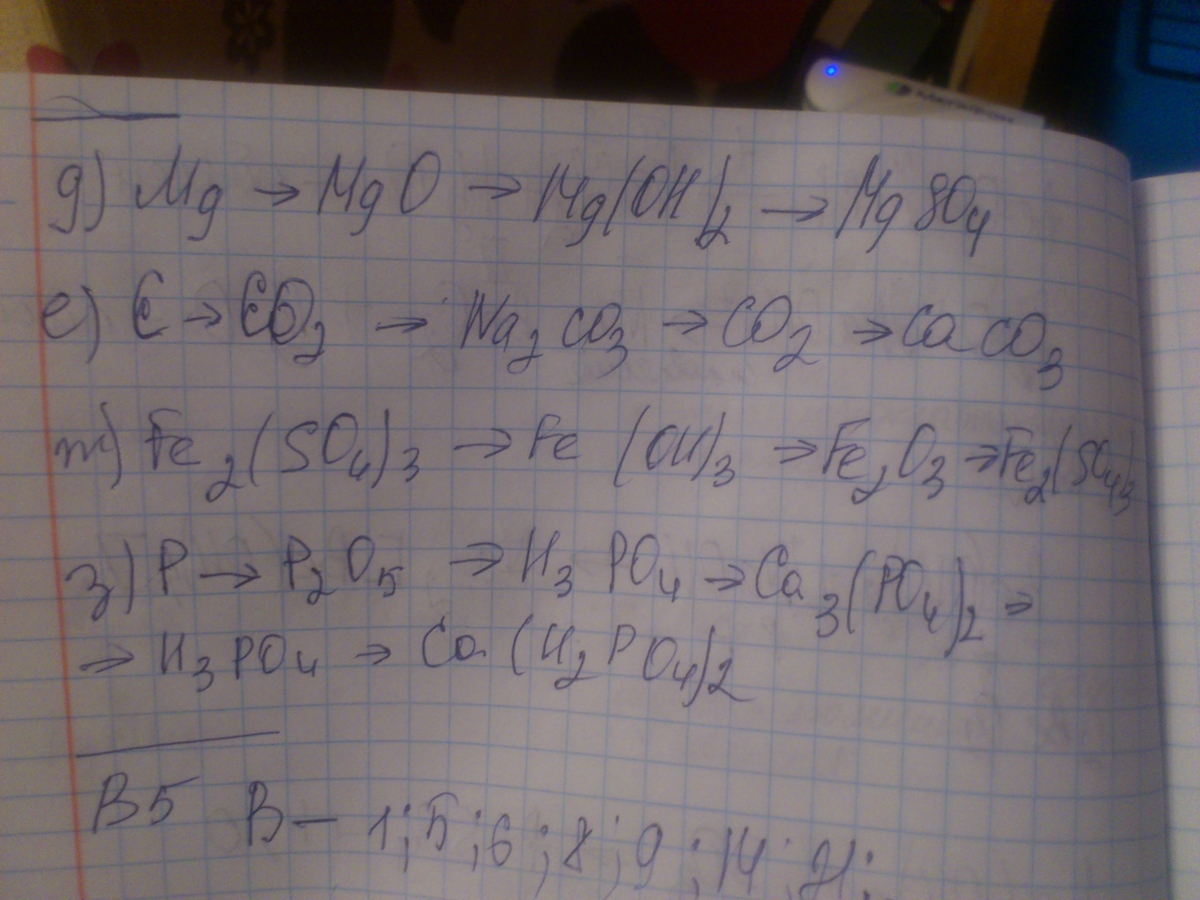 МегаФон
д) Mg → MgO → Mg(OH)₂ → MgSO₄
е) C → CO₂ → Na₂CO₃ → CO₂ → CaCO₃
ж) Fe₂(SO₄)₃ → Fe(OH)₃ → Fe₂O₃ → Fe₂(SO₄)₃
з) P → P₂O₅ → H₃PO₄ → Ca₃(PO₄)₂ →
→ H₃PO₄ → Ca(H₂PO₄)₂
В5 В – 1; 5; 6; 8; 9; 14; 21;